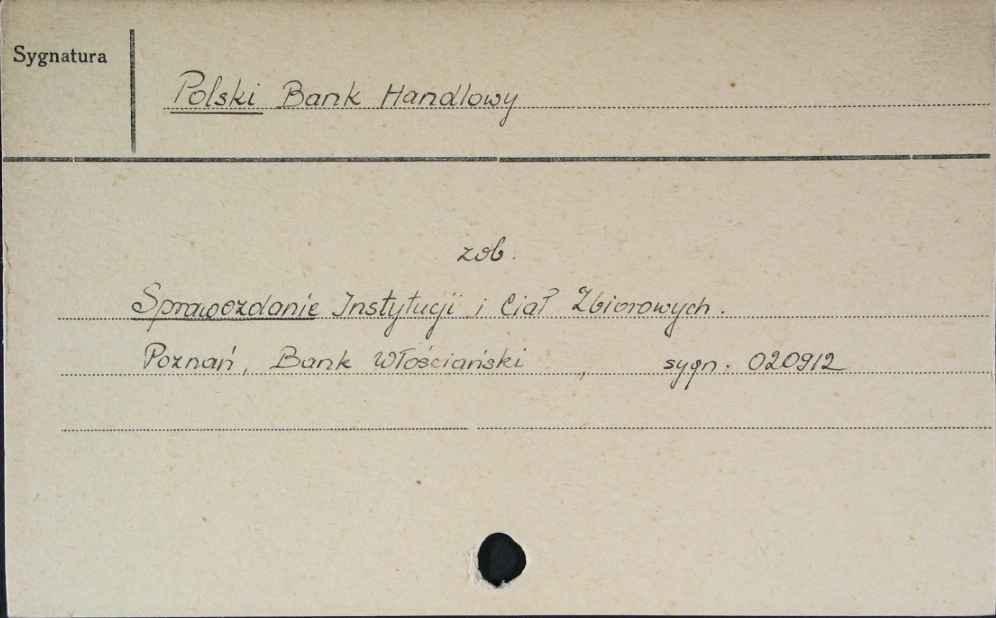 Sygnatura
Polski Bank Handlowy
zob.
Sprawozdanie Instytucji i Ciał Zbiorowych.
Poznań, Bank Włościański, sygn. 020912